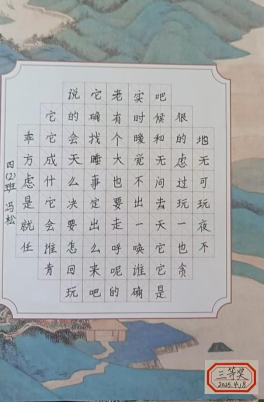 地无可玩夜不
很的虑过玩它也贪
吧候和无间去天它它是
实时暧觉不出一唤谁确
老有个大也要走呼呢的
它确找睡事定出么来吧
说的会天么决要怎回玩
它它成什它会谁青
幸方虑是就任
四(2)班 冯松
三等奖
2025.4.18